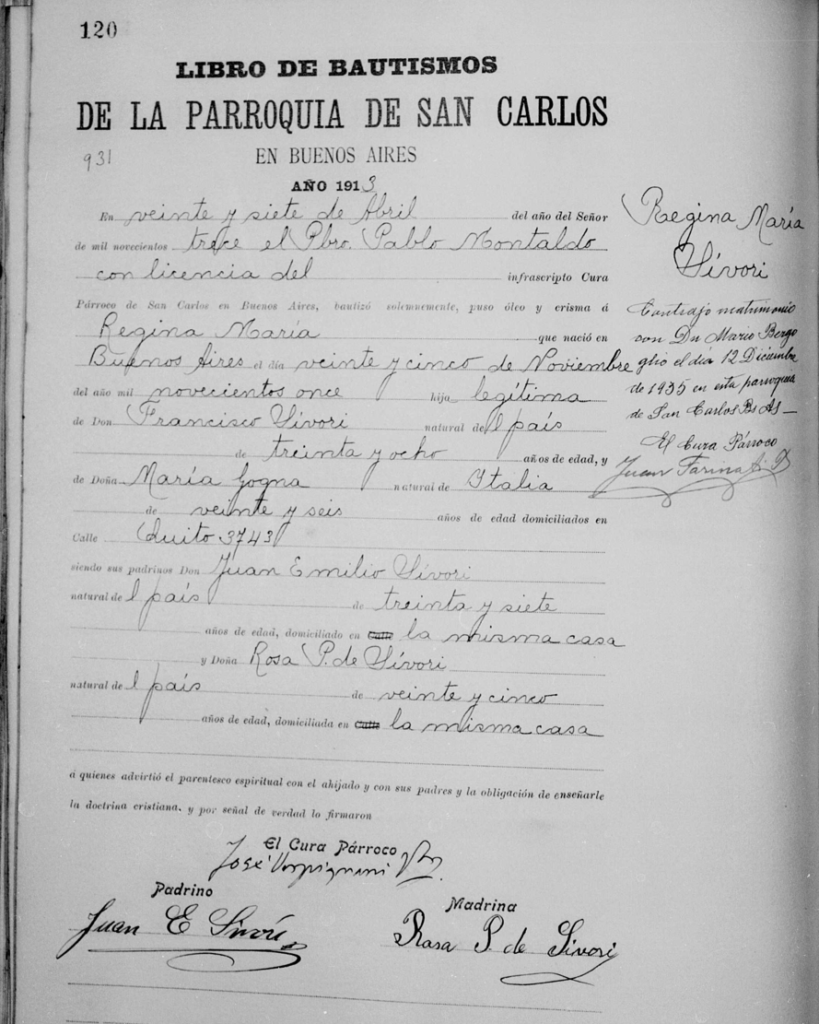 120
LIBRO DE BAUTISMOS
DE LA PARROQUIA DE SAN CARLOS
931
EN BUENOS AIRES
AÑO 1913
En veinte y siete de Abril del año del Señor
de mil novecientos trece el Pbro. Pablo Montaldo
con licencia del infrascripto Cura
Párroco de San Carlos en Buenos Aires, bautizó solemnemente, puso óleo y crisma á
Regina María que nació en
Buenos Aires el día veinte y cinco de Noviembre
del año mil novecientos once hija legítima
de Don Francisco Sívori natural del país
de treinta y ocho años de edad, y
de Doña María Gogna natural de Italia
de veinte y seis años de edad domiciliados en
Calle Quito 3743
siendo sus padrinos Don Juan Emilio Sívori
natural del país de treinta y siete
años de edad, domiciliado en Calle la misma casa
y Doña Rosa P. de Sívori
natural del país de veinte y cinco
años de edad, domiciliada en Calle la misma casa
á quienes advirtió el parentesco espiritual con el ahijado y con sus padres y la obligación de enseñarle
la doctrina cristiana, y por señal de verdad lo firmaron
El Cura Párroco
José Vespignani
Padrino
Juan E Sívori
Madrina
Rosa P. de Sivori
Regina María
Sívori
Contrajo matrimonio
con Dn Mario Bergo
glio el día 12 Diciembre
de 1935 en esta parroquia
de San Carlos Bs As—
El Cura Párroco
Juan Farinati